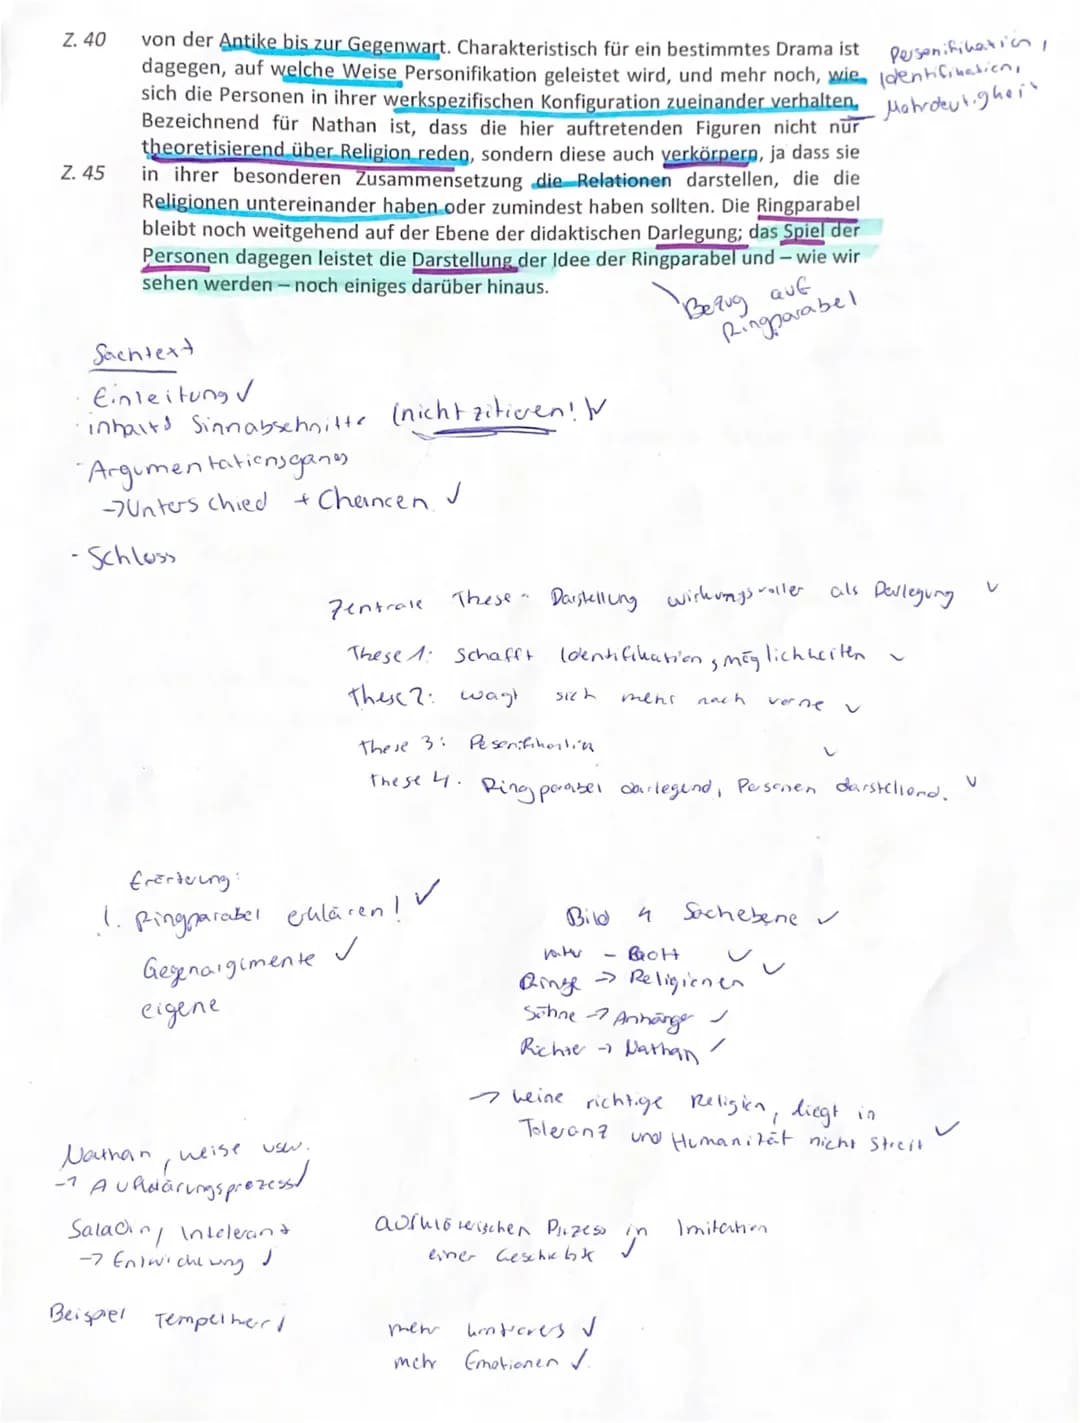 Z. 40 von der Antike bis zur Gegenwart. Charakteristisch für ein bestimmtes Drama ist
dagegen, auf welche Weise Personifikation geleistet wird, und mehr noch, wie
sich die Personen in ihrer werkspezifischen Konfiguration zueinander verhalten.
Bezeichnend für Nathan ist, dass die hier auftretenden Figuren nicht nur
theoretisierend über Religion reden, sondern diese auch verkörpern, ja dass sie
Z. 45 in ihrer besonderen Zusammensetzung die Relationen darstellen, die die
Religionen untereinander haben oder zumindest haben sollten. Die Ringparabel
bleibt noch weitgehend auf der Ebene der didaktischen Darlegung; das Spiel der
Personen dagegen leistet die Darstellung der Idee der Ringparabel und – wie wir
sehen werden – noch einiges darüber hinaus.
Personifikation,
Identifikation,
Mehrdeutigkeit
Bezug auf
Ringparabel
Sachtext
· Einleitung ✓
· inhaltl Sinnabschnitte (nicht zitieren! ✓
- Argumentationsgang
→ Unterschied + Chancen ✓
- Schluss
Zentrale These - Darstellung wirkungsvoller als Darlegung ✓
These 1: schafft Identifikation, möglichkeiten ✓
These 2: wagt sich mehr nach vorne ✓
These 3: Pesonifikation ✓
These 4. Ringparabel darlegend, Personen darstellend. ✓
Erörterung:
1. Ringparabel erklären! ✓
Gegenargumente ✓
eigene
Bild Sachebene ✓
Vater - Gott ✓
Ringe → Religionen ✓
Söhne → Anhänger ✓
Richter → Nathan ✓
→ keine richtige Religion, liegt in
Toleranz und Humanität nicht Streit ✓
Nathan, weise usw.
→ Aufklärungsprozess ✓
Saladin, Intolerant
→ Entwicklung ✓
Beispiel Tempelherr
aufklärerischen Prozess in Imitation
einer Geschichte ✓
mehr konkretes ✓
mehr Emotionen ✓